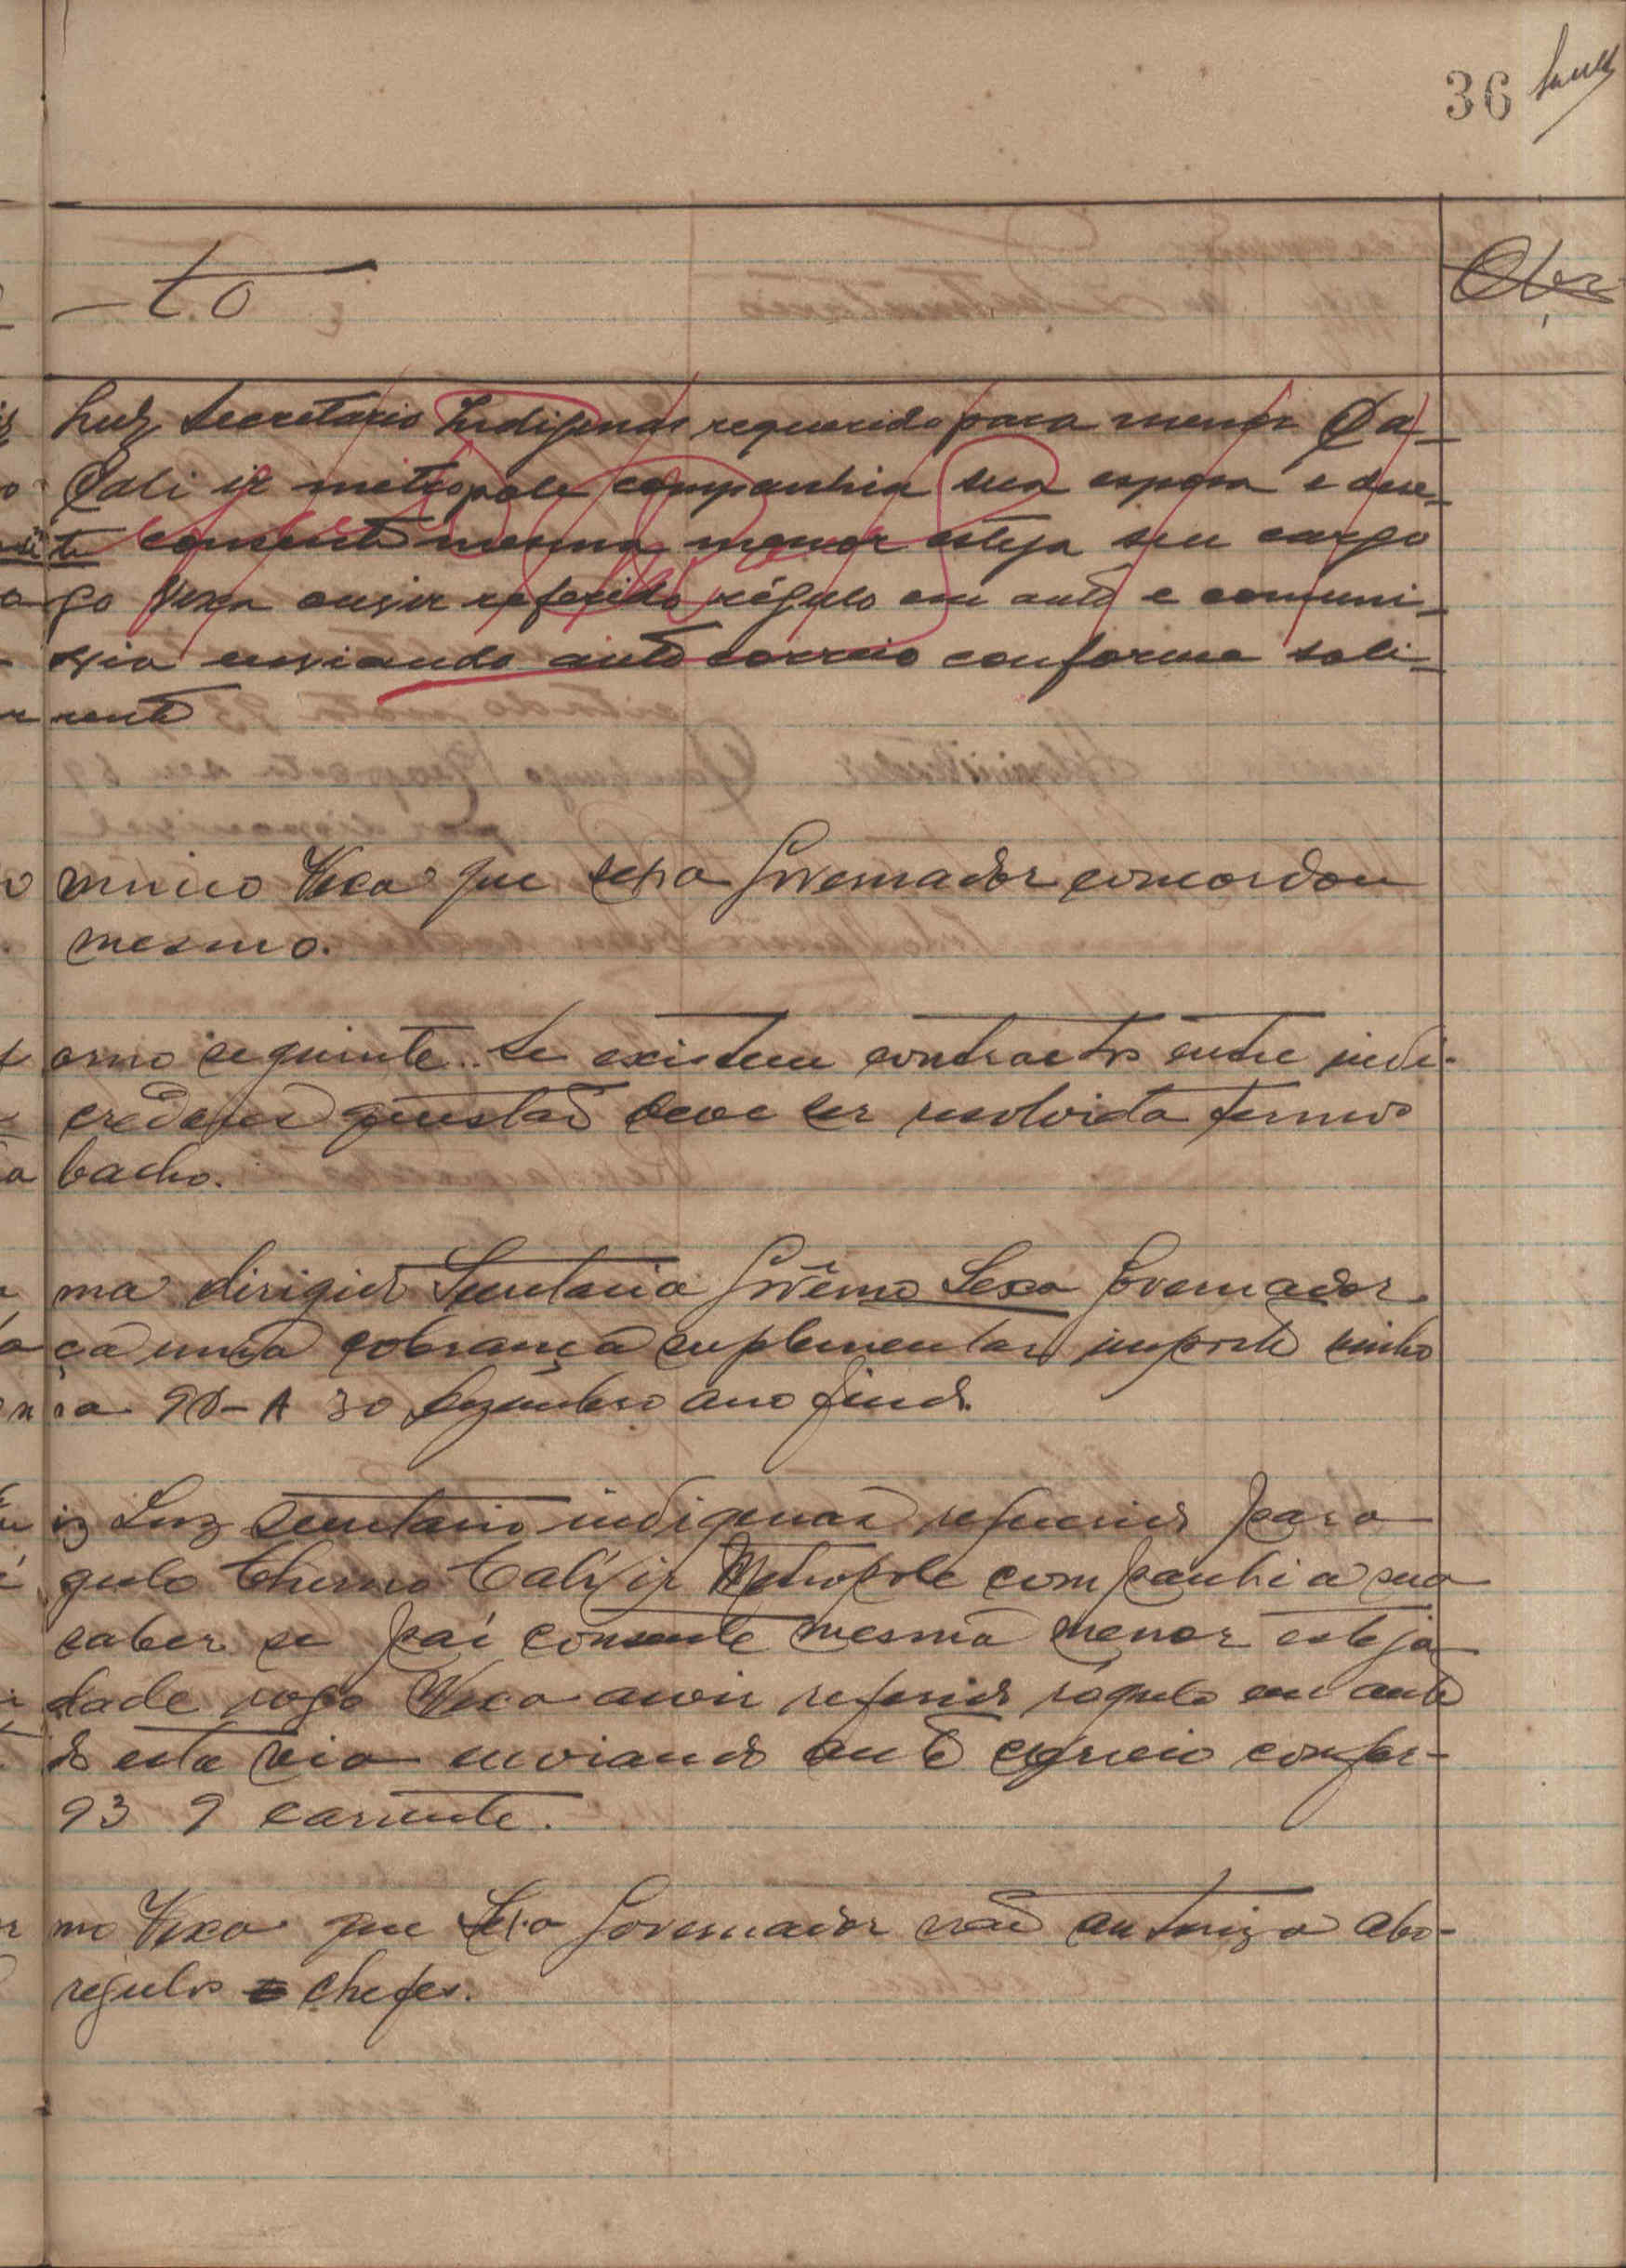 36
-to
Obs
Luz Secretario Indigenas requerido para menor Da-
Cali ir metropole companhia sua esposa e dese-
te consente mesma menor esteja seu cargo
go Vexa ouvir referido régulo em auto e comuni-
via enviando auto correio conforme soli-
rente
nico Vexa que sexa Governador concordou
mesmo.
omo seguinte. Se existem contractos entre indi-
questão deve ser resolvida termos
bacho.
ma dirigido Secretaria Govêrno Sexa Governador.
ça uma cobrança suplementar imposto
ia 98-A 30 Dezembro ano findo.
iz Luz Secretario indigenas requerido para
gulo Cherno Cali ir Metropole companhia sua
saber se pai consente mesma menor esteja
dade rogo Vexa ouvir referido régulo em auto
do esta via enviando auto correio confor-
93 9 corrente.
mo Vexa que Sexa Governador não autoriza abo-
regulos e chefes.